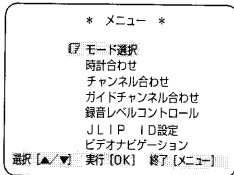 * メニュー *
☞ モード選択
時計合わせ
チャンネル合わせ
ガイドチャンネル合わせ
録音レベルコントロール
JLIP ID設定
ビデオナビゲーション
選択 [▲/▼] 実行 [OK] 終了 [メニュー]